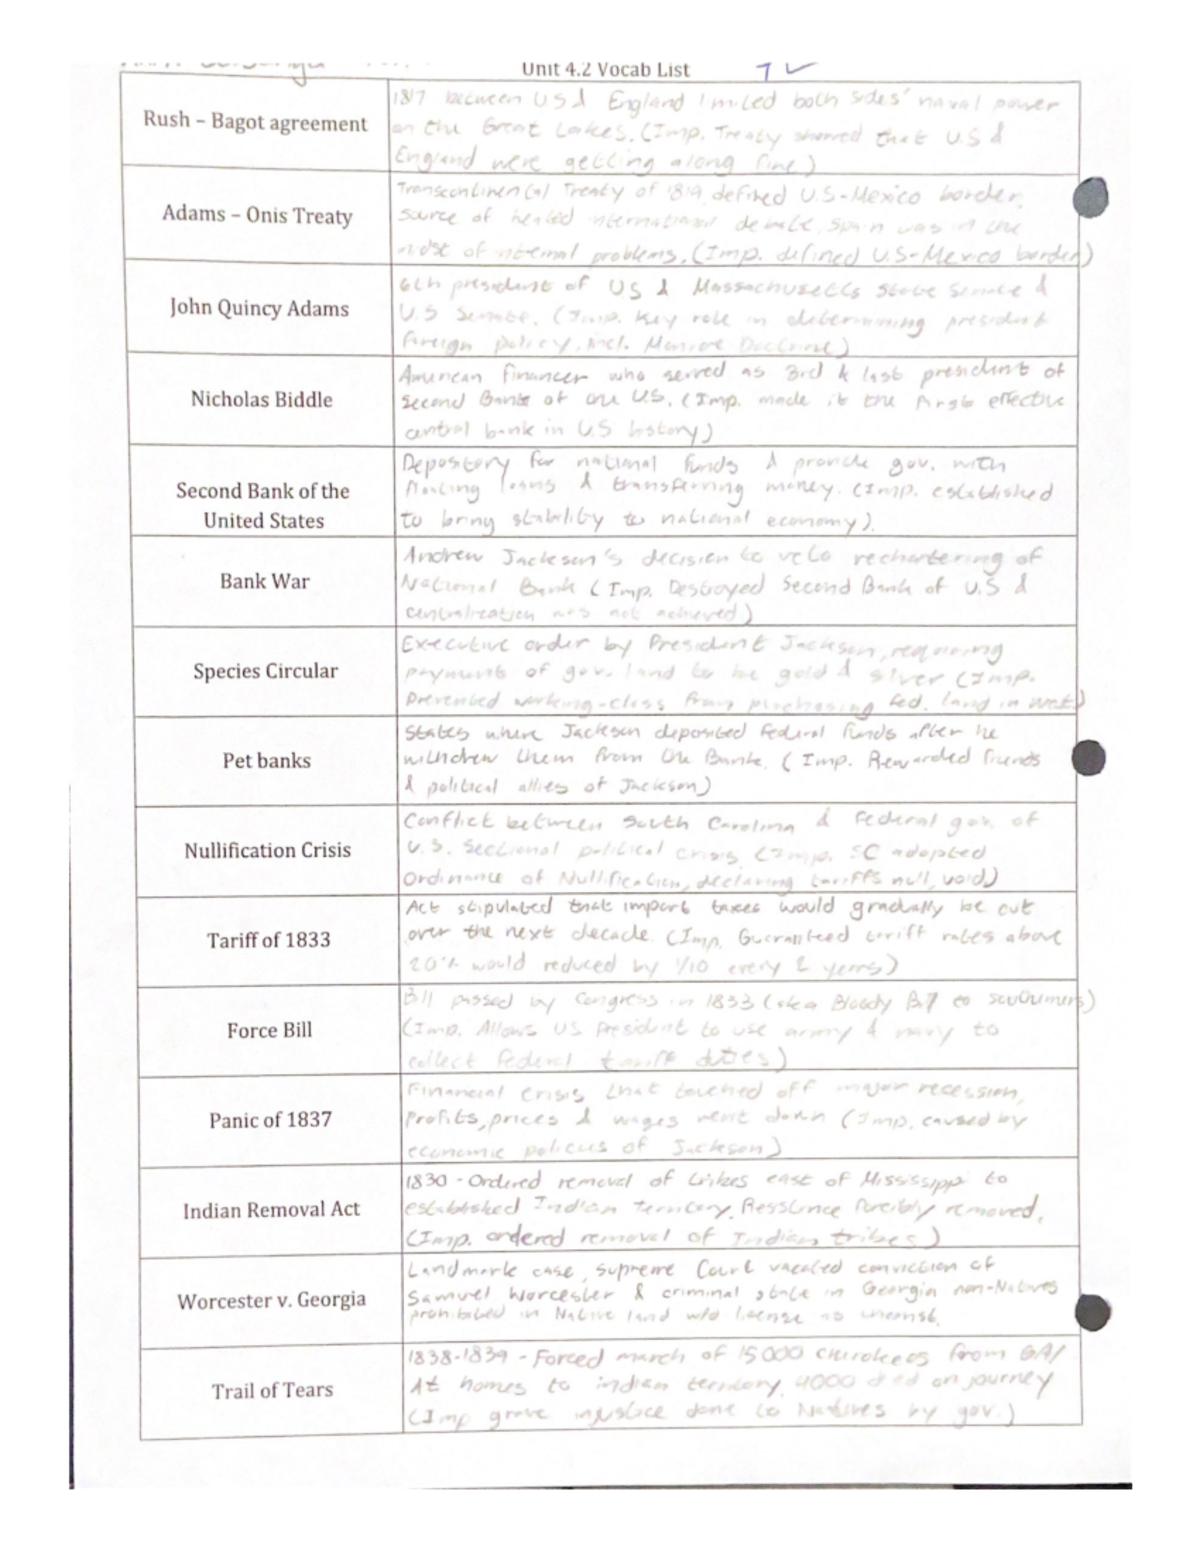 Unit 4.2 Vocab List
Rush – Bagot agreement
1817 between US & England limited both sides' naval power
on the Great Lakes. (Imp. Treaty showed that U.S &
England were getting along fine)
Adams – Onis Treaty
Transcontinental Treaty of 1819, defined U.S-Mexico border,
source of heated international debate, Spain was in the
midst of internal problems. (Imp. defined U.S-Mexico border)
John Quincy Adams
6th president of US & Massachusetts State Senate &
U.S Senate. (Imp. Key role in determining president
foreign policy, incl. Monroe Doctrine)
Nicholas Biddle
American financer who served as 3rd & last president of
Second Bank of the U.S. (Imp. made it the first effective
central bank in U.S history)
Second Bank of the
United States
Depository for national funds & provide gov. with
floating loans & transferring money. (Imp. established
to bring stability to national economy).
Bank War
Andrew Jackson's decision to veto rechartering of
National Bank (Imp. Destroyed Second Bank of U.S &
centralization was not achieved)
Species Circular
Executive order by President Jackson, requiring
payments of gov. land to be gold & silver (Imp.
Prevented working-class from purchasing fed. land in west)
Pet banks
States where Jackson deposited federal funds after he
withdrew them from the Bank. (Imp. Rewarded friends
& political allies of Jackson)
Nullification Crisis
Conflict between South Carolina & Federal gov. of
U.S. Sectional political crisis. (Imp. SC adopted
Ordinance of Nullification, declaring tariffs null, void)
Tariff of 1833
Act stipulated that import taxes would gradually be cut
over the next decade. (Imp. Guaranteed tariff rates above
20% would reduced by 1/10 every 2 years)
Force Bill
Bill passed by Congress in 1833 (aka Bloody Bill to southerners)
(Imp. Allows US President to use army & navy to
collect federal tariff duties)
Panic of 1837
Financial crisis that touched off major recession,
Profits, prices & wages went down (Imp. caused by
economic policies of Jackson)
Indian Removal Act
1830 - Ordered removal of tribes east of Mississippi to
established Indian territory. forcibly removed.
(Imp. ordered removal of Indian tribes)
Worcester v. Georgia
Landmark case, Supreme Court vacated conviction of
Samuel Worcester & criminal state in Georgia non-Natives
prohibited in Native land w/o license as unconst.
Trail of Tears
1838-1839 - Forced march of 15000 Cherokees from GA/
homes to indian territory, 4000 died on journey
(Imp grave injustice done to Natives by gov.)